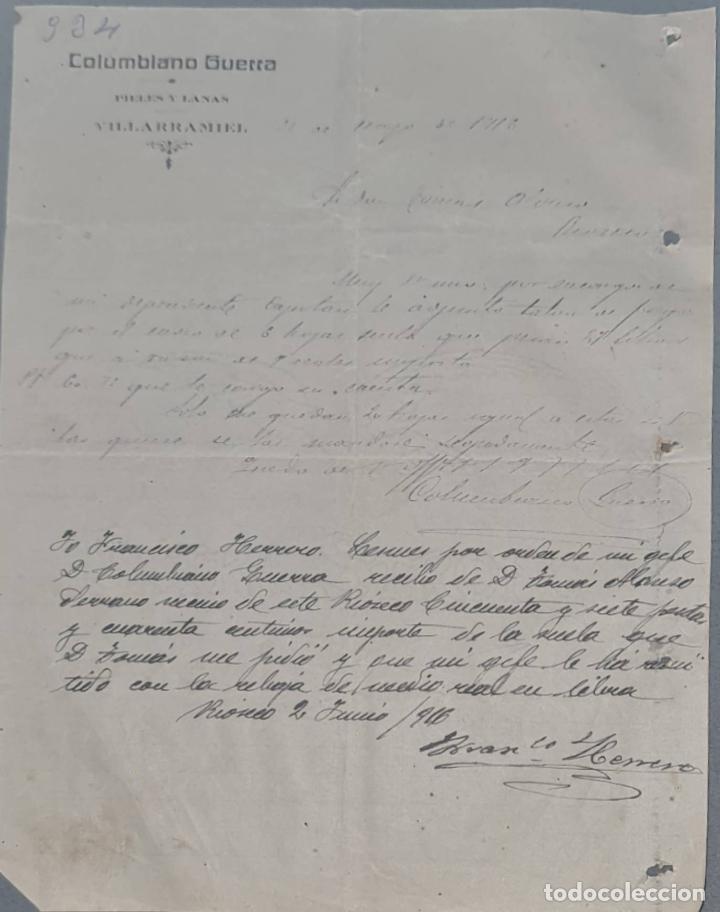 934
Columbiano Guerra
PIELES Y LANAS
VILLARRAMIEL
de Mayo de 1916
Sr Don Tomas Alonso
Rioseco
Muy Sr mio: por encargo de
mi dependiente Capitan le adjunto talon de
por el envio de 6 hojas suela que pesan libras
que a razon de 9 reales importa
que le cargo en cuenta.
Solo me quedan 20 hojas igual a estas si
las quiere se las mandaré
Queda de V
Columbiano Guerra
Yo Francisco Herrero. por orden de mi gefe
D Columbiano Guerra recibo de D Tomás Alonso
Serrano vecino de este Rioseco Cincuenta y siete pesetas
y cuarenta centimos importe de la suela que
D Tomás me pidió y que mi gefe le há remi
tido con la rebaja de medio real en libra
Rioseco 2 Junio /916
Franco Herrero
todocoleccion
todocoleccion.net